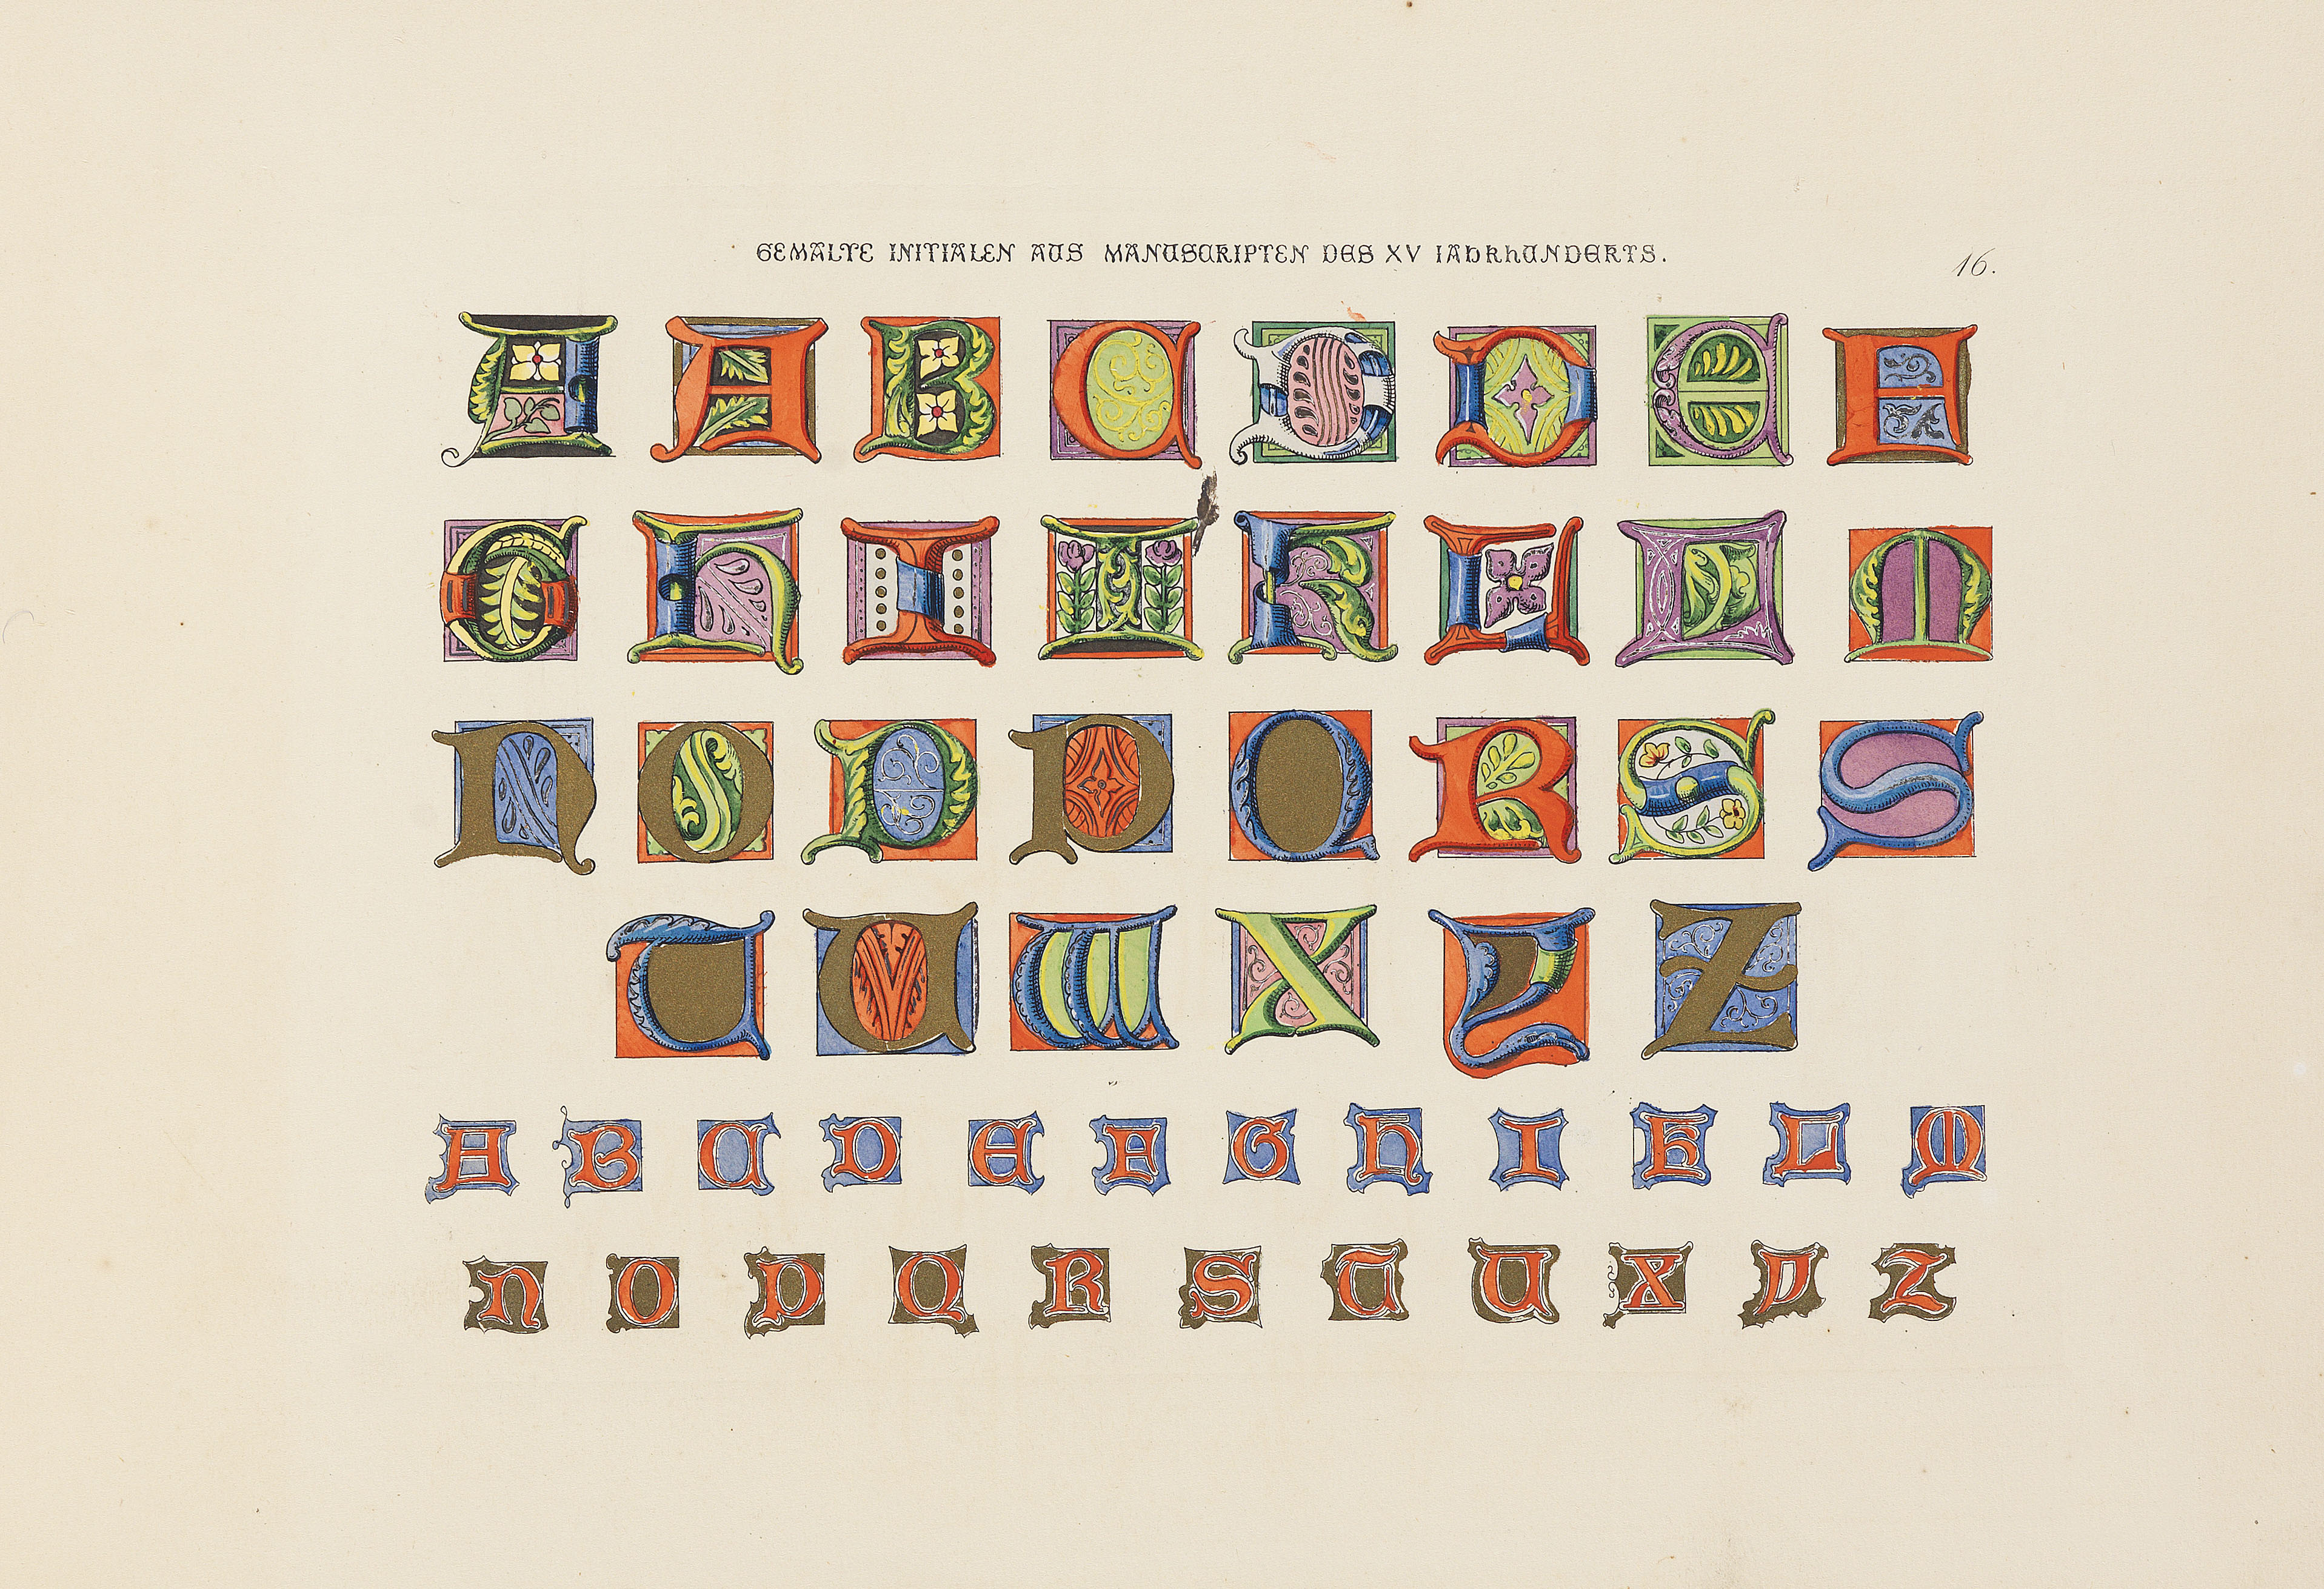 GEMALTE INITIALEN AUS MANUSCRIPTEN DES XV IAHRHUNDERTS.
16.
A A B C D D E F
G H I I K L L M
N O P P Q R S S
T U W X Y Z
A B C D E F G H I K L M
N O P Q R S T U X Y Z